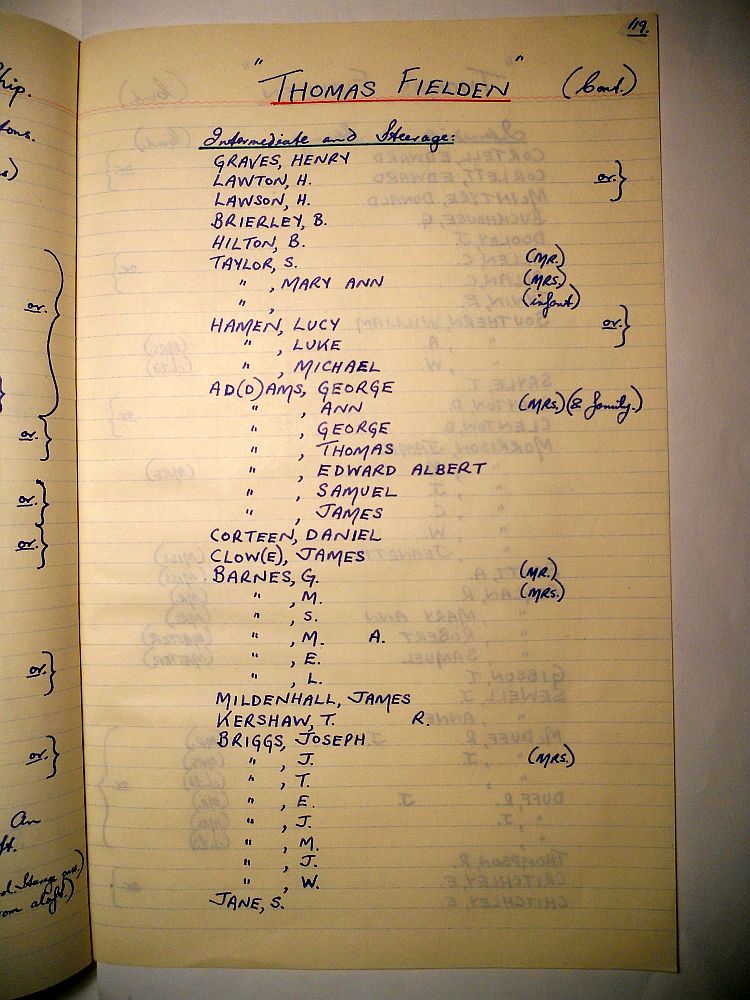 119.
" THOMAS FIELDEN " (Cont.)
Intermediate and Steerage:
GRAVES, HENRY
LAWTON, H. or. }
LAWSON, H.
BRIERLEY, B.
HILTON, B.
TAYLOR, S. (MR.)
" , MARY ANN (MRS)
" , (infant)
HAMEN, LUCY or. }
" , LUKE
" , MICHAEL
AD(D)AMS, GEORGE
" , ANN (MRS.) (& family.)
" , GEORGE
" , THOMAS
" , EDWARD ALBERT
" , SAMUEL
" , JAMES
CORTEEN, DANIEL
CLOW(E), JAMES
BARNES, G. (MR.)
" , M. (MRS.)
" , S.
" , M. A.
" , E.
" , L.
MILDENHALL, JAMES
KERSHAW, T. R.
BRIGGS, JOSEPH
" , J. (MRS.)
" , T.
" , E.
" , J.
" , M.
" , J.
" , W.
JANE, S.
hip.
tons.
s)
or. }
or. }
or. }
or. }
or. }
or. }
An
ft.
om aloft.)